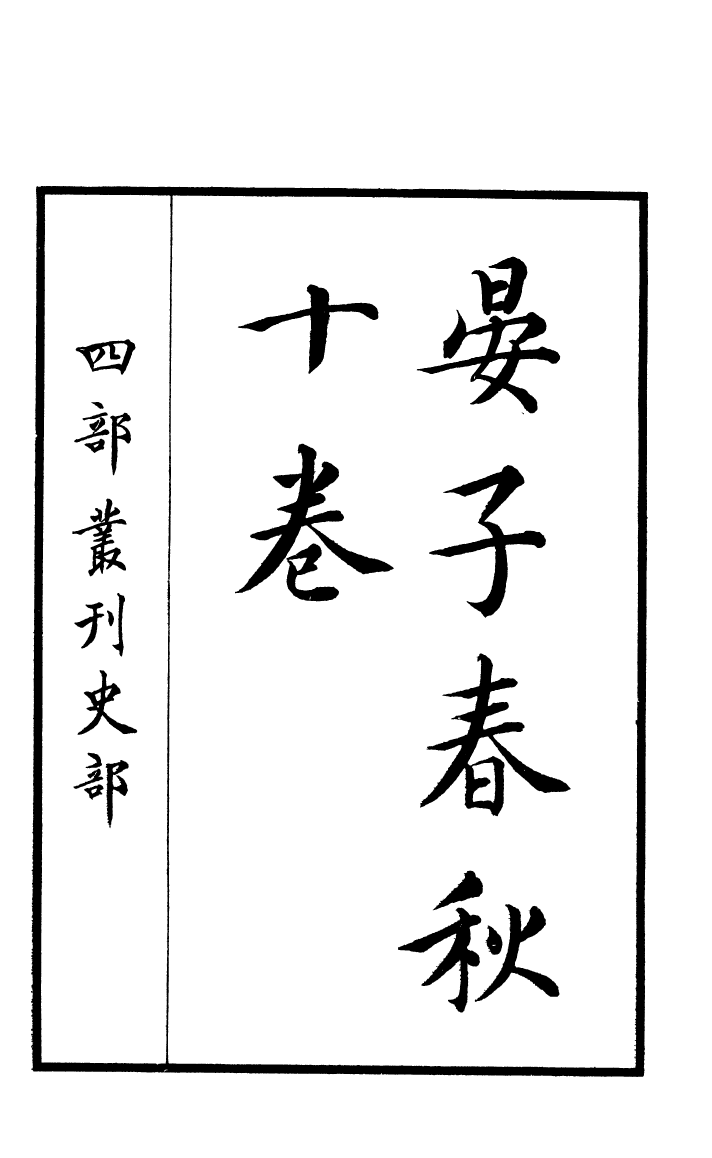 晏子春秋
十卷
四部叢刊史部